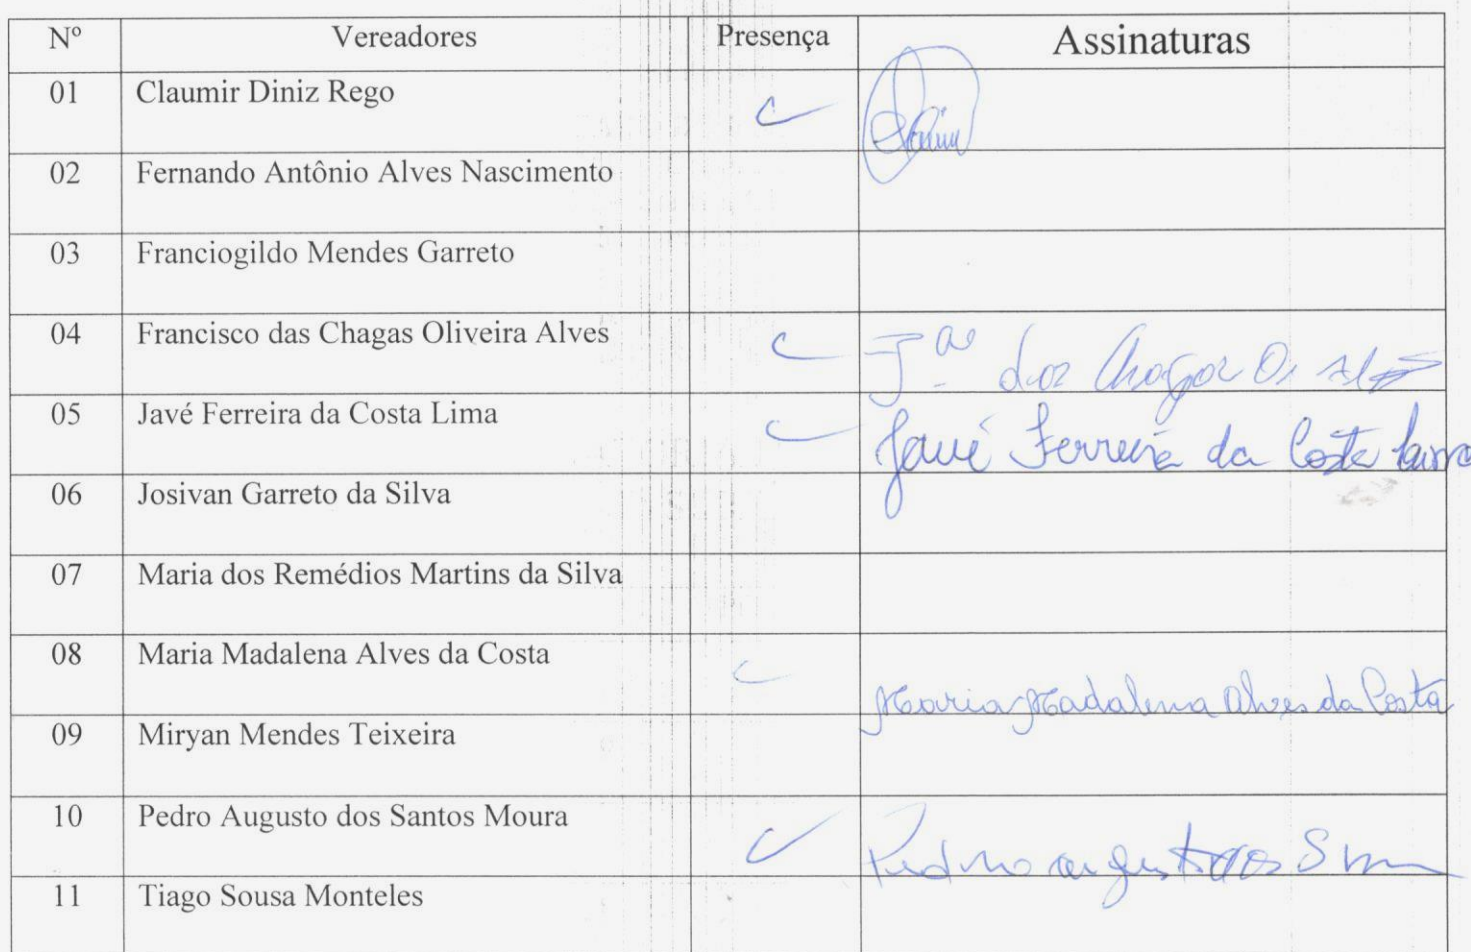 Nº Vereadores Presença Assinaturas
01 Claumir Diniz Rego
02 Fernando Antônio Alves Nascimento
03 Franciogildo Mendes Garreto
04 Francisco das Chagas Oliveira Alves Fco das Chagas O. Alves
05 Javé Ferreira da Costa Lima Javé Ferreira da Costa Lima
06 Josivan Garreto da Silva
07 Maria dos Remédios Martins da Silva
08 Maria Madalena Alves da Costa Maria Madalena Alves da Costa
09 Miryan Mendes Teixeira
10 Pedro Augusto dos Santos Moura Pedro
11 Tiago Sousa Monteles